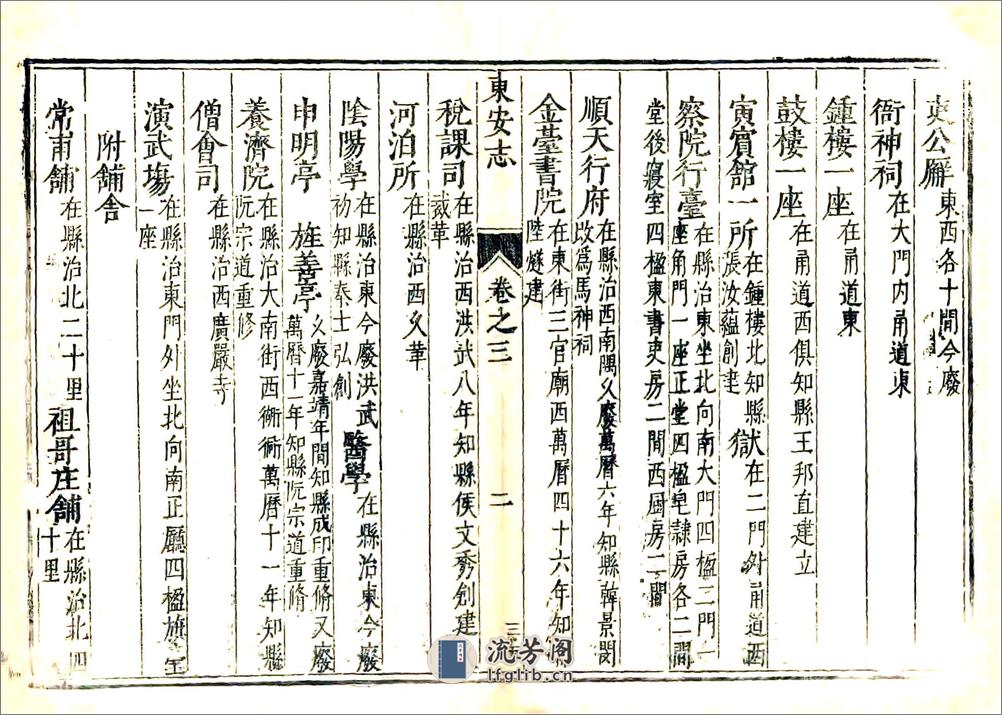 吏公廨東西各十間今廢
衙神祠在大門內甬道東
鍾樓一座在甬道東
鼓樓一座在甬道西俱知縣王邦直建立
寅賓館一所在鍾樓北知縣張汝蘊創建 獄在二門外甬道西
察院行臺在縣治東坐北向南大門四楹二門一座角門一座正堂四楹皂隸房各二間
堂後寢室四楹東書吏房二間西厨房二間
順天行府在縣治西南隅久廢萬曆六年知縣韓景閔改爲馬神祠
金臺書院在東街三官廟西萬曆四十六年知陸燧建
東安志 卷之三 二
稅課司在縣治西洪武八年知縣侯文秀創建裁革
河泊所在縣治西久革
陰陽學在縣治東今廢洪武初知縣秦士弘創 醫學在縣治東今廢
申明亭 旌善亭久廢嘉靖年間知縣成印重脩又廢萬曆十一年知縣阮宗道重脩
養濟院在縣治大南街西衚衕萬曆十一年知縣阮宗道重修
僧會司在縣治西廣嚴寺
演武塲在縣治東門外坐北向南正廳四楹旗一座
附舖舎
常甫舖在縣治北二十里 祖哥庄舖在縣治北四十里
流芳阁
lfglib.cn